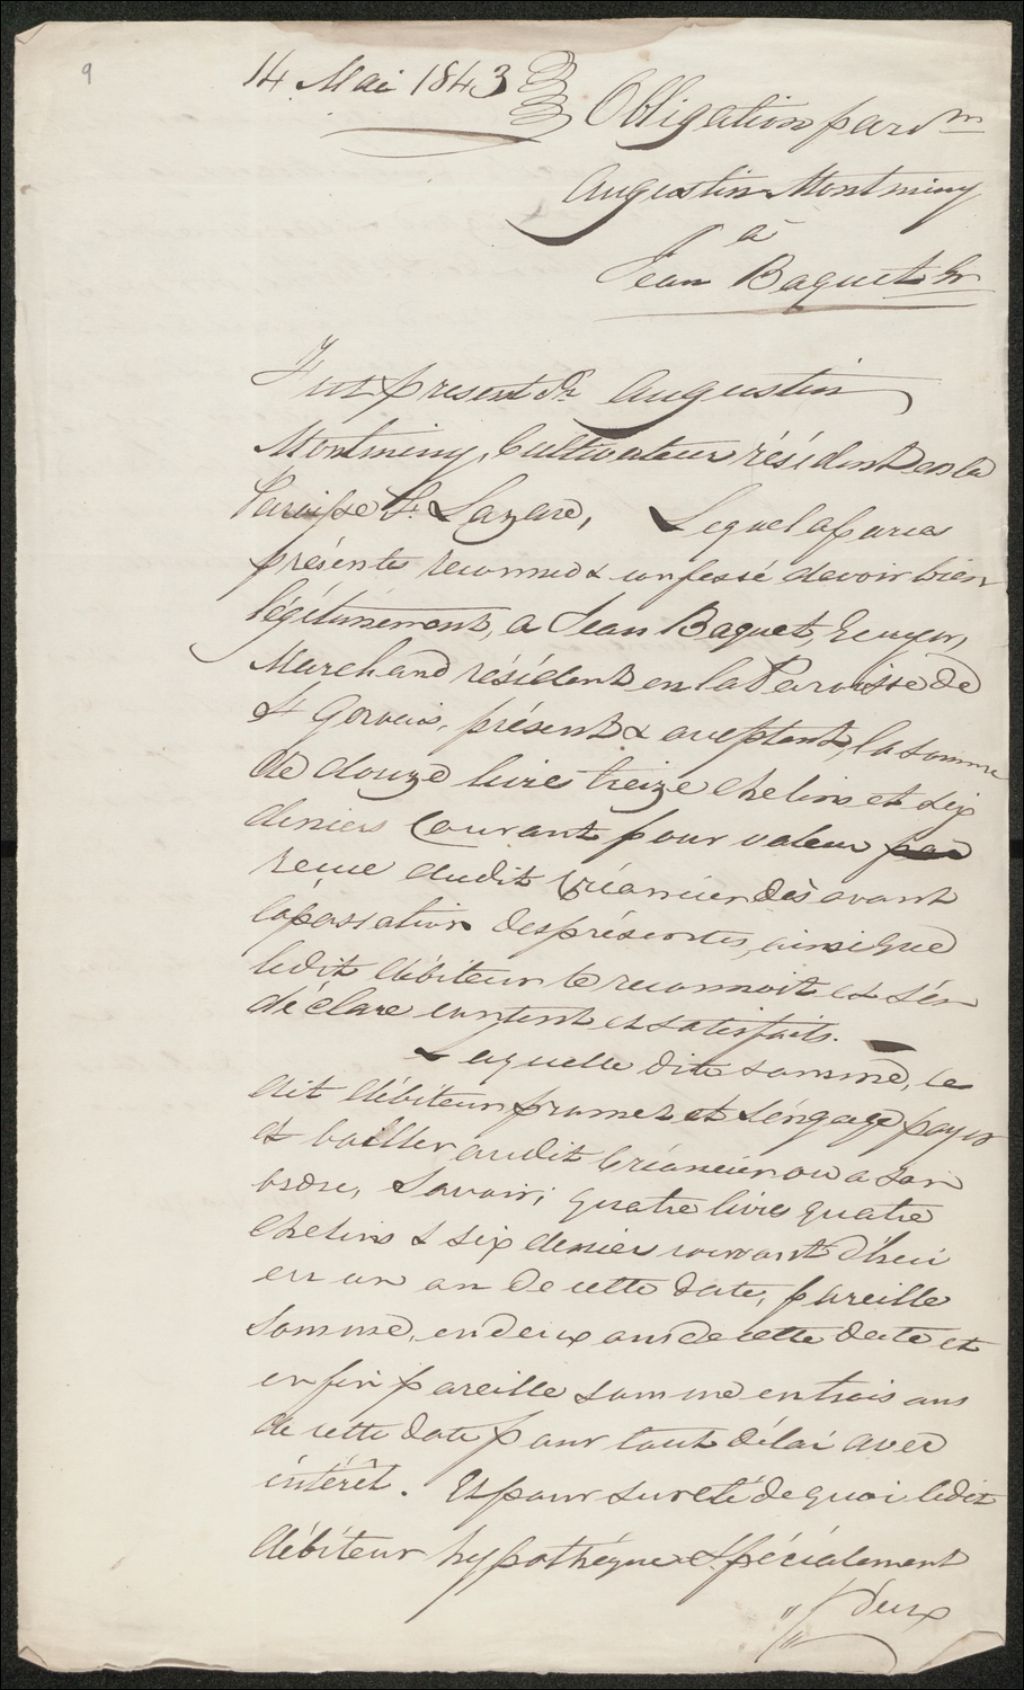 9
14 Mai 1843
Obligation par Sr
Augustin Montminy
à
Jean Baquet Er
Fut présent Sr Augustin
Montminy, Cultivateur résident en la
Paroisse St. Lazare, Lequel a par ces
présentes reconnu & confessé devoir bien
légitimement, a Jean Baquet, Ecuyer,
Marchand résident en la Paroisse de
St Gervais, présent & acceptant, la somme
de douze livres treize chelins et six
deniers Courant pour valeur par
reçue dudit Créancier dès avant
la passation des présentes, ainsi que
ledit débiteur le reconnoit et s'en
déclare content et satisfait.
Laquelle dite somme, le
dit débiteur promet et s'engage payer
et bailler audit Créancier ou a son
ordre, Savoir; quatre livres quatre
chelins & six deniers courant d'hui
en un an de cette date, pareille
somme, en deux ans de cette date et
enfin pareille somme en trois ans
de cette date pour tout délai avec
intérêt. Et pour sureté de quoi ledit
débiteur hypothéque Spécialement
deux